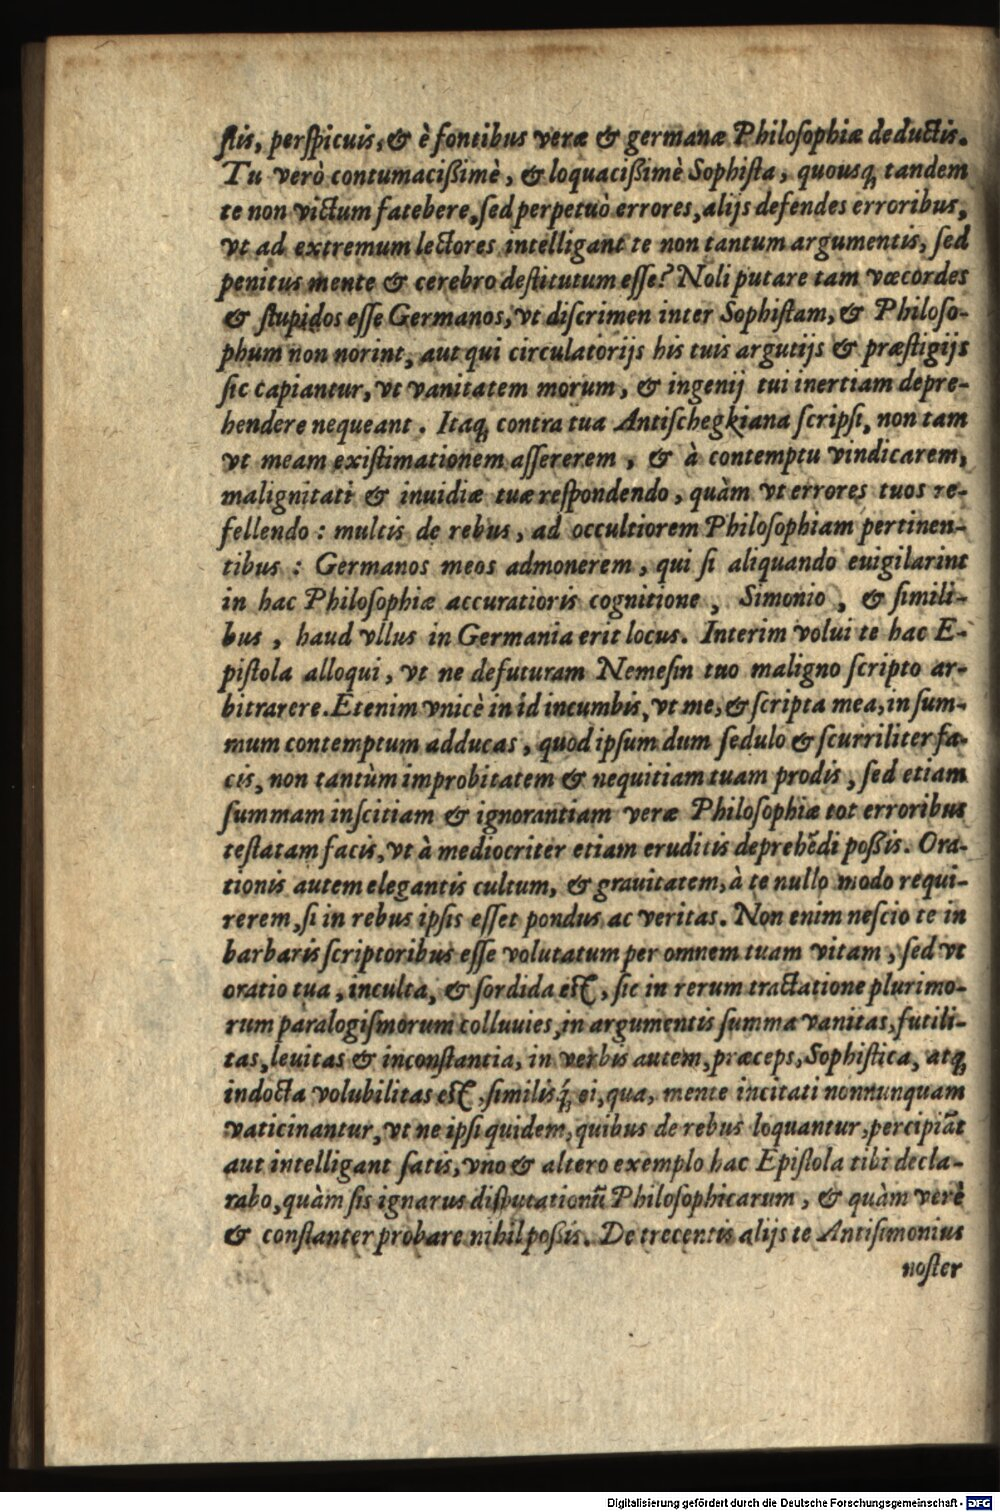 ſtis, perſpicuis, & è fontibus veræ & germanæ Philoſophiæ deductis.
Tu verò contumacißimè, & loquacißimè Sophiſta, quouſq; tandem
te non victum fatebere, ſed perpetuò errores, alijs defendes erroribus,
vt ad extremum lectores intelligant te non tantum argumentis, ſed
penitus mente & cerebro deſtitutum eſſe? Noli putare tam væcordes
& ſtupidos eſſe Germanos, vt diſcrimen inter Sophiſtam, & Philoſo-
phum non norint, aut qui circulatorijs his tuis argutijs & præſtigijs
ſic capiantur, vt vanitatem morum, & ingenij tui inertiam depre-
hendere nequeant. Itaq; contra tua Antiſchegkiana ſcripſi, non tam
vt meam exiſtimationem aſſererem, & à contemptu vindicarem,
malignitati & inuidiæ tuæ reſpondendo, quàm vt errores tuos re-
fellendo : multis de rebus, ad occultiorem Philoſophiam pertinen-
tibus : Germanos meos admonerem, qui ſi aliquando euigilarint
in hac Philoſophiæ accuratioris cognitione, Simonio, & ſimili-
bus, haud vllus in Germania erit locus. Interim volui te hac E-
piſtola alloqui, vt ne defuturam Nemeſin tuo maligno ſcripto ar-
bitrarere. Etenim vnicè in id incumbis, vt me, & ſcripta mea, in ſum-
mum contemptum adducas, quod ipſum dum ſedulo & ſcurriliter fa-
cis, non tantùm improbitatem & nequitiam tuam prodis, ſed etiam
ſummam inſcitiam & ignorantiam veræ Philoſophiæ tot erroribus
teſtatam facis, vt à mediocriter etiam eruditis deprehēdi poßis. Ora-
tionis autem elegantis cultum, & grauitatem, à te nullo modo requi-
rerem, ſi in rebus ipſis eſſet pondus ac veritas. Non enim neſcio te in
barbaris ſcriptoribus eſſe volutatum per omnem tuam vitam, ſed vt
oratio tua, inculta, & ſordida eſt, ſic in rerum tractatione plurimo-
rum paralogiſmorum colluuies, in argumentis ſumma vanitas, futili-
tas, leuitas & inconſtantia, in verbis autem, præceps, Sophiſtica, atq;
indocta volubilitas eſt, ſimilisq́; ei, qua, mente incitati nonnunquam
vaticinantur, vt ne ipſi quidem, quibus de rebus loquantur, percipiāt
aut intelligant ſatis, vno & altero exemplo hac Epiſtola tibi decla-
rabo, quàm ſis ignarus diſputationū Philoſophicarum, & quàm verè
& conſtanter probare nihil poßis. De trecentis alijs te Antiſimonius
noſter
Digitalisierung gefördert durch die Deutsche Forschungsgemeinschaft - DFG